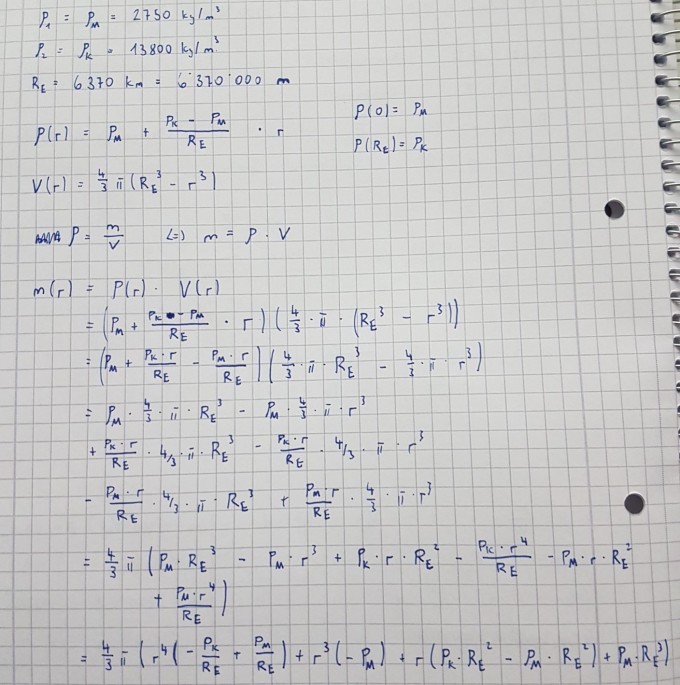 ρ₁ = ρ_M = 2750 kg/m³
ρ₂ = ρ_K = 13800 kg/m³
R_E = 6370 km = 6'370'000 m
ρ(r) = ρ_M + (ρ_K - ρ_M)/R_E · r
ρ(0) = ρ_M
ρ(R_E) = ρ_K
V(r) = 4/3 π (R_E³ - r³)
ρ = m/V <=> m = ρ · V
m(r) = ρ(r) · V(r)
= (ρ_M + (ρ_K - ρ_M)/R_E · r) (4/3 · π · (R_E³ - r³))
= (ρ_M + (ρ_K · r)/R_E - (ρ_M · r)/R_E) (4/3 · π · R_E³ - 4/3 · π · r³)
= ρ_M · 4/3 · π · R_E³ - ρ_M · 4/3 · π · r³
+ (ρ_K · r)/R_E · 4/3 · π · R_E³ - (ρ_K · r)/R_E · 4/3 · π · r³
- (ρ_M · r)/R_E · 4/3 · π · R_E³ + (ρ_M · r)/R_E · 4/3 · π · r³
= 4/3 π (ρ_M · R_E³ - ρ_M · r³ + ρ_K · r · R_E² - (ρ_K · r⁴)/R_E - ρ_M · r · R_E²
+ (ρ_M · r⁴)/R_E)
= 4/3 π (r⁴(- ρ_K/R_E + ρ_M/R_E) + r³(-ρ_M) + r(ρ_K · R_E² - ρ_M · R_E²) + ρ_M · R_E³)